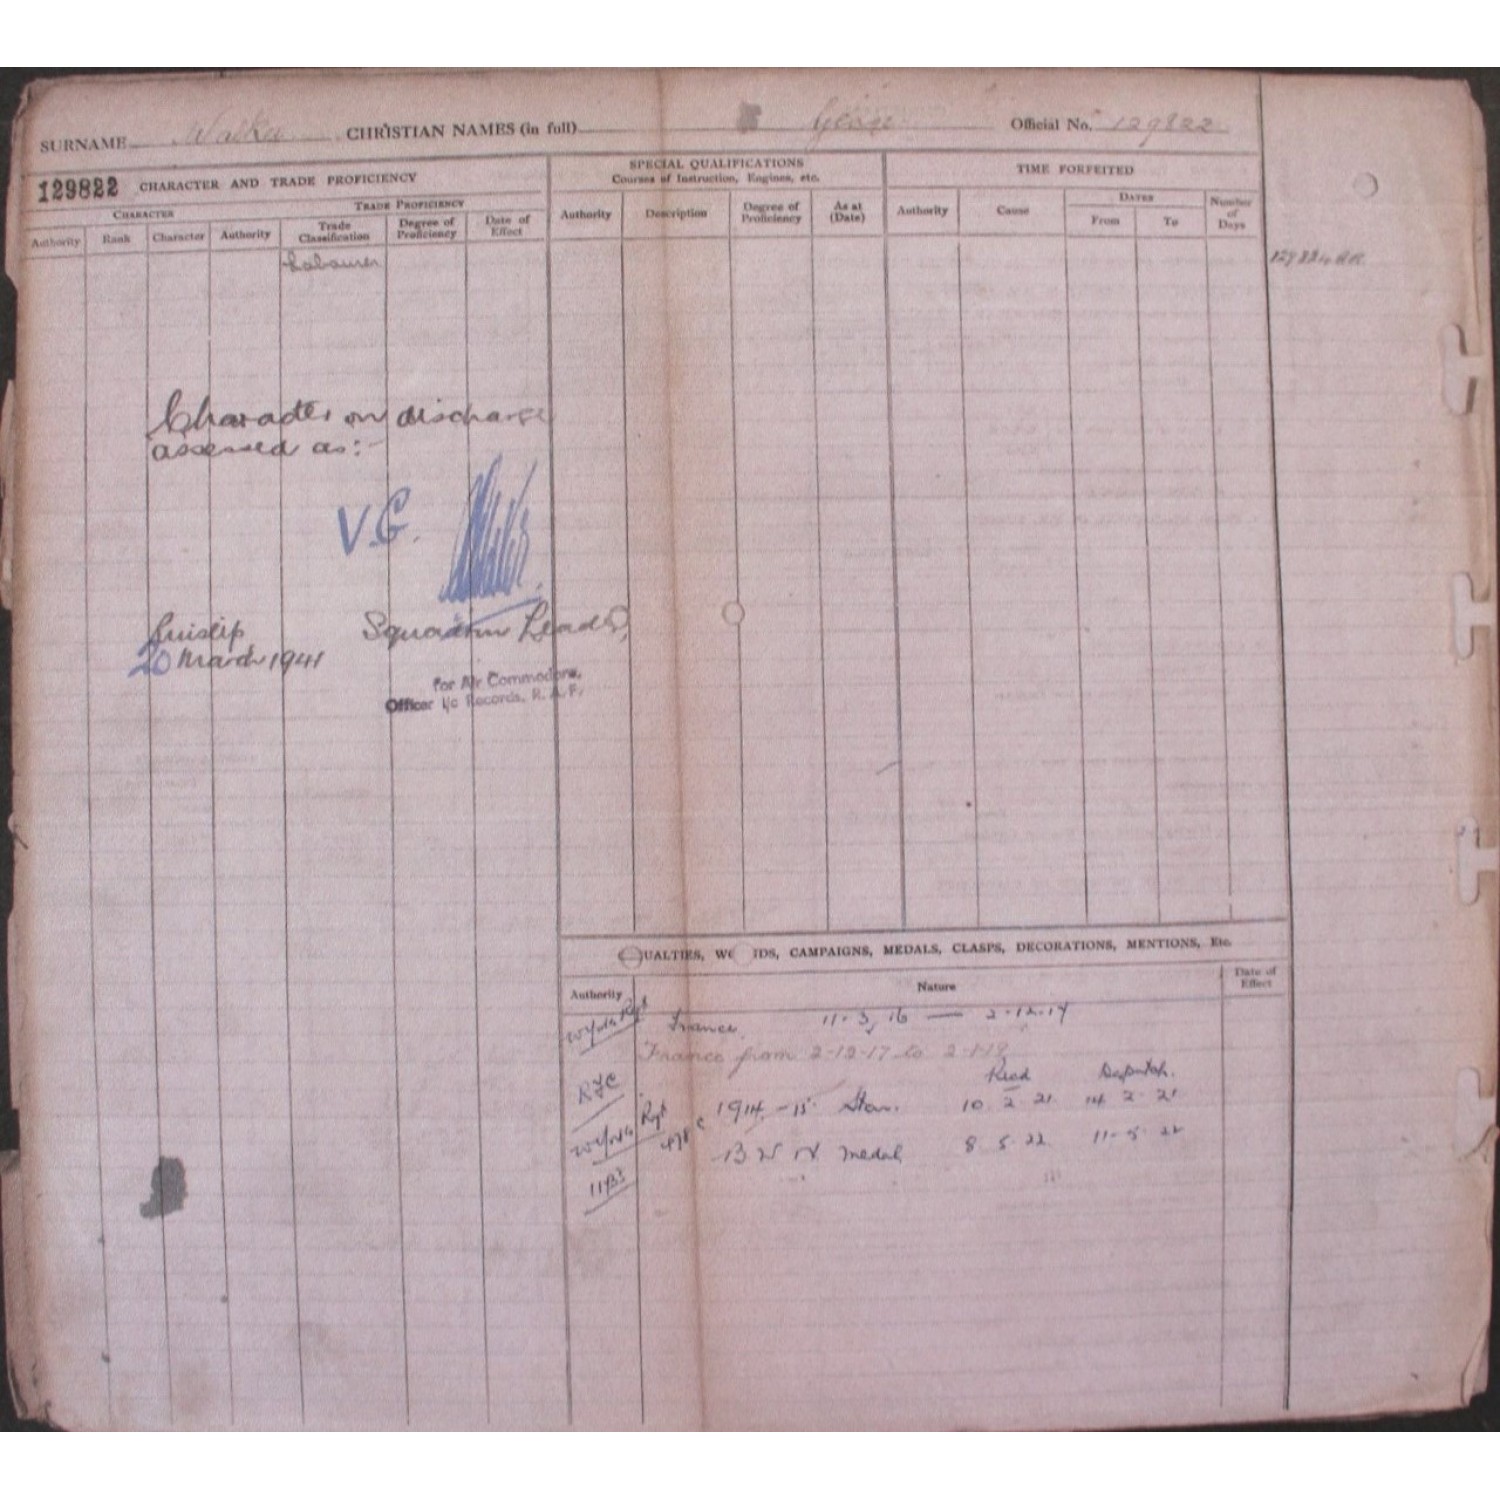 SURNAME Walker CHRISTIAN NAMES (in full) George Official No. 129822
129822 CHARACTER AND TRADE PROFICIENCY
CHARACTER
TRADE PROFICIENCY
Authority Rank Character Authority Trade Classification Degree of Proficiency Date of Effect
Labourer
Character on discharge
assessed as:-
V.G.
Ruislip
20 March 1941
Squadron Leader,
for Air Commodore,
Officer i/c Records, R.A.F.
SPECIAL QUALIFICATIONS
Courses of Instruction, Engines, etc.
Authority Description Degree of Proficiency As at (Date)
TIME FORFEITED
Authority Cause DATES From To Number of Days
UALTIES, WO NDS, CAMPAIGNS, MEDALS, CLASPS, DECORATIONS, MENTIONS, Etc.
Authority Nature Date of Effect
France 11-3-16 — 2-12-17
France from 2-12-17 to 2-1-19
RFC
Recd Despatch.
1914-15 Star. 10 2 21 14 2 21
B W V Medal 8 5 22 11-5-22